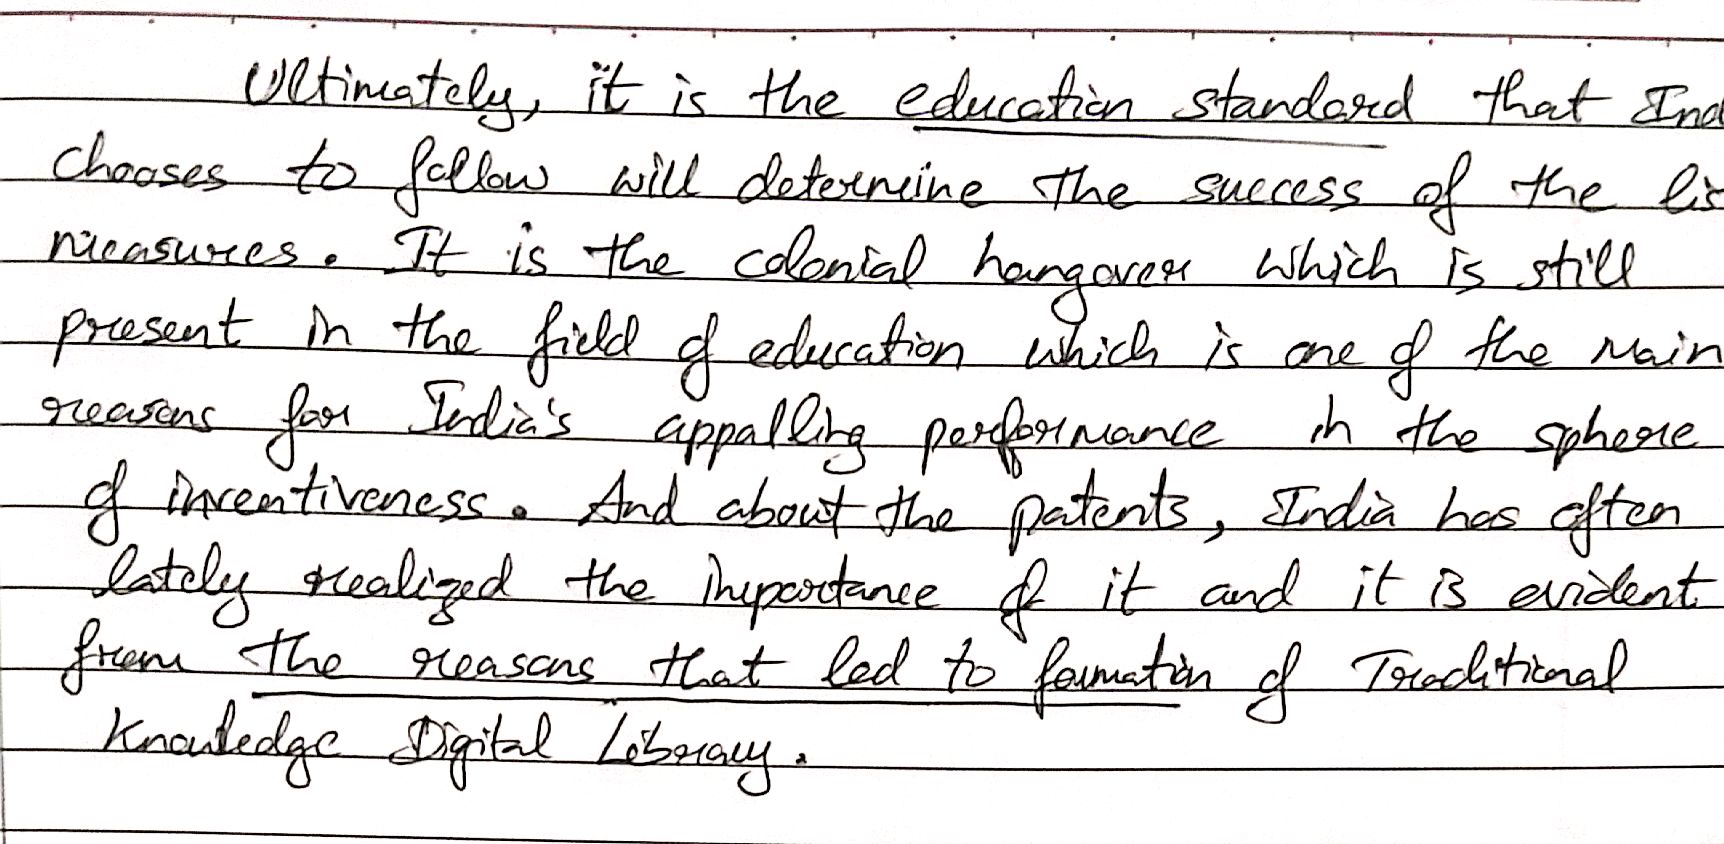 Ultimately, it is the education standard that Ind
chooses to follow will determine the success of the lis
measures. It is the colonial hangover which is still
present in the field of education which is one of the main
reasons for India's appalling performance in the sphere
of inventiveness. And about the patents, India has often
lately realized the importance of it and it is evident
from the reasons that led to formation of Traditional
Knowledge Digital Library.